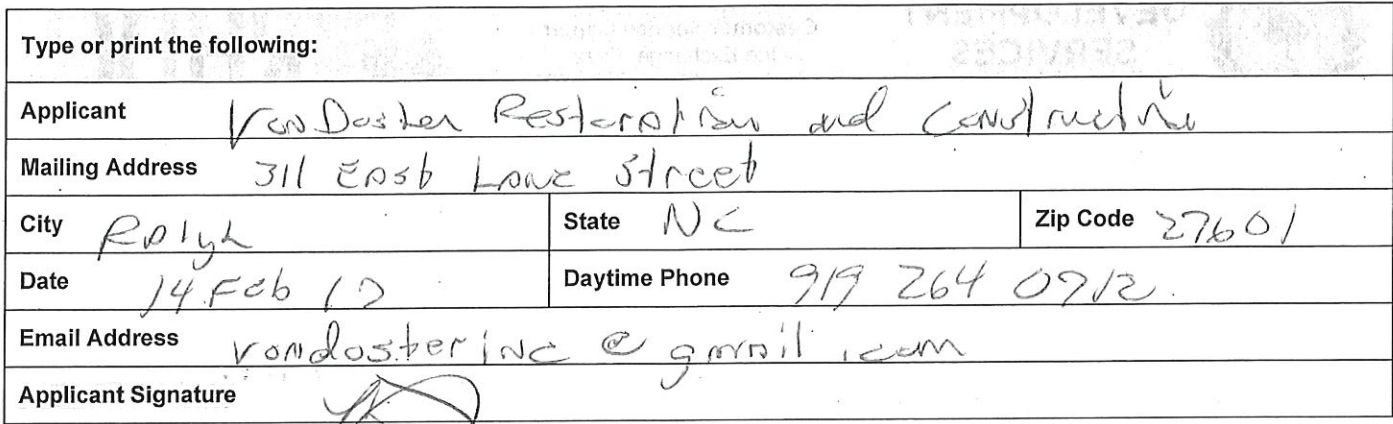 Type or print the following:
Applicant Von Doster Restoration and Construction
Mailing Address 311 East Lane Street
City Ralgh State NC Zip Code 27601
Date 14 Feb 17 Daytime Phone 919 264 0712
Email Address vondosterinc@gmail.com
Applicant Signature